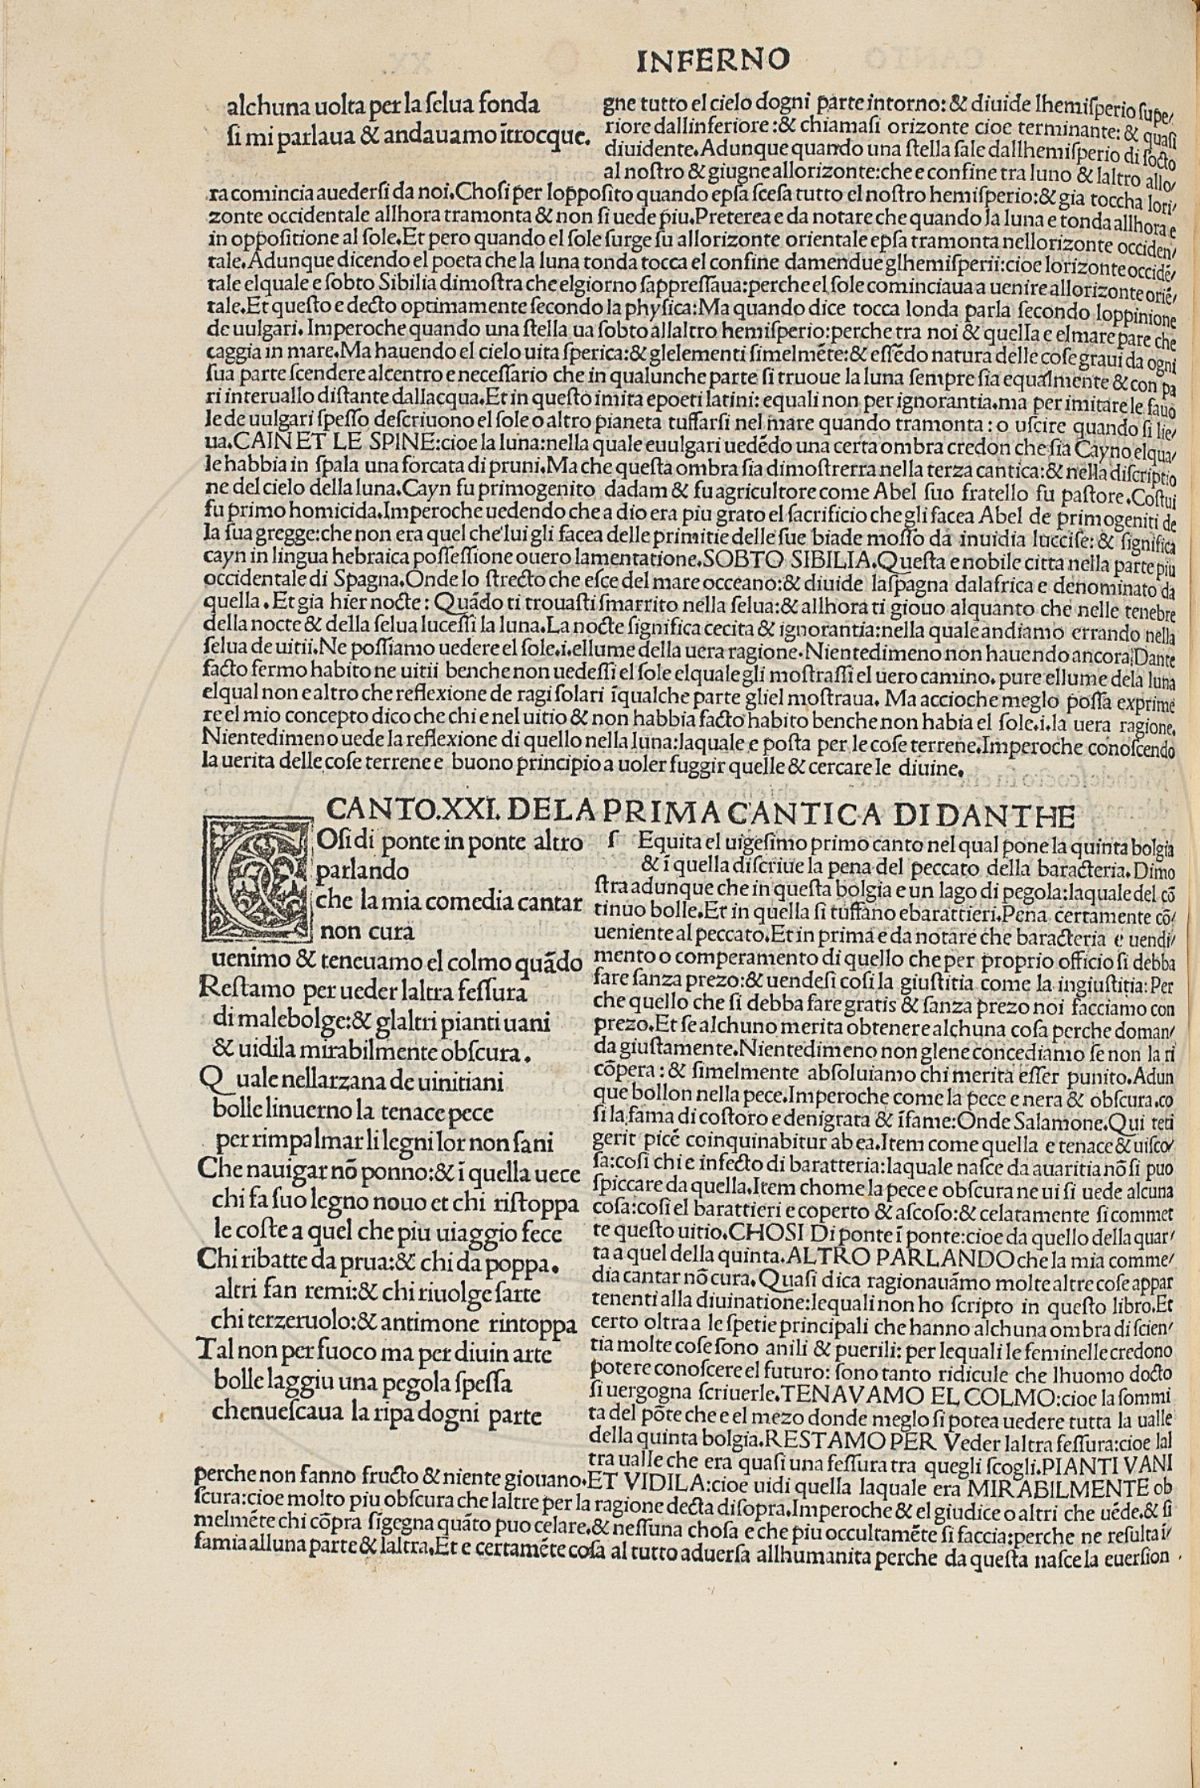 INFERNO
alchuna uolta per la ſelua fonda
ſi mi parlaua & andauamo ītrocque.
gne tutto el cielo dogni parte intorno: & diuide lhemiſperio ſupe/
riore dallinferiore :& chiamaſi orizonte cioe terminante: & quaſi
diuidente. Adunque quando una ſtella ſale dallhemiſperio di ſocto
al noſtro & giugne allorizonte:che e confine tra luno & laltro allo/
ra comincia auederſi da noi. Choſi per loppoſito quando epſa ſceſa tutto el noſtro hemiſperio:& gia toccha lori/
zonte occidentale allhora tramonta & non ſi uede piu. Preterea e da notare che quando la luna e tonda allhora e
in oppoſitione al ſole. Et pero quando el ſole ſurge ſu allorizonte orientale epſa tramonta nellorizonte occiden/
tale. Adunque dicendo el poeta che la luna tonda tocca el confine damendue glhemiſperii:cioe lorizonte occidē/
tale elquale e ſobto Sibilia dimoſtra che elgiorno ſappreſſaua:perche el ſole cominciaua a uenire allorizonte oriē/
tale. Et queſto e decto optimamente ſecondo la phyſica: Ma quando dice tocca londa parla ſecondo loppinione
de uulgari. Imperoche quando una ſtella ua ſobto allaltro hemiſperio:perche tra noi & quella e elmare pare che
caggia in mare. Ma hauendo el cielo uita ſperica:& glelementi ſimelmēte:& eſſēdo natura delle coſe graui da ogni
ſua parte ſcendere alcentro e neceſſario che in qualunche parte ſi truoue la luna ſempre ſia equalmente & con pa
ri interuallo diſtante dallacqua. Et in queſto imita epoeti latini: equali non per ignorantia.ma per imitare le fauo
le de uulgari ſpeſſo deſcriuono el ſole o altro pianeta tuffarſi nel mare quando tramonta : o uſcire quando ſi lie/
ua. CAIN ET LE SPINE:cioe la luna:nella quale euulgari uedēdo una certa ombra credon che ſia Cayno elqua/
le habbia in ſpala una forcata di pruni. Ma che queſta ombra ſia dimoſtrerra nella terza cantica:& nella diſcriptio
ne del cielo della luna. Cayn fu primogenito dadam & fu agricultore come Abel ſuo fratello fu paſtore. Coſtui
fu primo homicida. Imperoche uedendo che a dio era piu grato el ſacrificio che gli facea Abel de primogeniti de
la ſua gregge:che non era quel che lui gli facea delle primitie delle ſue biade moſſo da inuidia lucciſe: & ſignifica
cayn in lingua hebraica poſſeſſione ouero lamentatione. SOBTO SIBILIA. Queſta e nobile citta nella parte piu
occidentale di Spagna. Onde lo ſtrecto che eſce del mare occeano:& diuide laſpagna dalafrica e denominato da
quella. Et gia hier nocte: Quādo ti trouaſti ſmarrito nella ſelua:& allhora ti giouo alquanto che nelle tenebre
della nocte & della ſelua luceſſi la luna. La nocte ſignifica cecita & ignorantia:nella quale andiamo errando nella
ſelua de uitii. Ne poſſiamo uedere el ſole.i.ellume della uera ragione. Nientedimeno non hauendo ancora Dante
facto fermo habito ne uitii benche non uedeſſi el ſole elquale gli moſtraſſi el uero camino. pure ellume dela luna
elqual non e altro che reflexione de ragi ſolari īqualche parte gliel moſtraua. Ma accioche meglo poſſa exprime
re el mio concepto dico che chi e nel uitio & non habbia facto habito benche non habia el ſole.i.la uera ragione.
Nientedimeno uede la reflexione di quello nella luna:laquale e poſta per le coſe terrene. Imperoche conoſcendo
la uerita delle coſe terrene e buono principio a uoler fuggir quelle & cercare le diuine.
CANTO.XXI. DE LA PRIMA CANTICA DI DANTHE
COſi di ponte in ponte altro
parlando
che la mia comedia cantar
non cura
uenimo & teneuamo el colmo quādo
Reſtamo per ueder laltra feſſura
di malebolge:& glaltri pianti uani
& uidila mirabilmente obſcura .
Quale nellarzana de uinitiani
bolle linuerno la tenace pece
per rimpalmar li legni lor non ſani
Che nauigar nō ponno:& ī quella uece
chi fa ſuo legno nouo et chi riſtoppa
le coſte a quel che piu uiaggio fece
Chi ribatte da prua:& chi da poppa.
altri fan remi:& chi riuolge ſarte
chi terzeruolo:& antimone rintoppa
Tal non per fuoco ma per diuin arte
bolle laggiu una pegola ſpeſſa
chenueſcaua la ripa dogni parte
ſ Equita el uigeſimo primo canto nel qual pone la quinta bolgia
& ī quella diſcriue la pena del peccato della baracteria. Dimo
ſtra adunque che in queſta bolgia e un lago di pegola:laquale del cō
tinuo bolle. Et in quella ſi tuffano ebarattieri. Pena certamente cō/
ueniente al peccato. Et in prima e da notare che baracteria e uendi/
mento o comperamento di quello che per proprio officio ſi debba
fare ſanza prezo:& uendeſi coſi la giuſtitia come la ingiuſtitia: Per
che quello che ſi debba fare gratis & ſanza prezo noi facciamo con
prezo. Et ſe alchuno merita obtenere alchuna coſa perche doman/
da giuſtamente. Nientedimeno non glene concediamo ſe non la ri
cōpera : & ſimelmente abſoluiamo chi merita eſſer punito. Adun
que bollon nella pece. Imperoche come la pece e nera & obſcura.co
ſi la fama di coſtoro e denigrata & īfame: Onde Salamone. Qui teti
gerit picē coinquinabitur ab ea. Item come quella e tenace & uiſco/
ſa:coſi chi e infecto di baratteria:laquale naſce da auaritia nō ſi puo
ſpiccare da quella. Item chome la pece e obſcura ne ui ſi uede alcuna
coſa:coſi el barattieri e coperto & aſcoſo:& celatamente ſi commet
te queſto uitio. CHOSI Di ponte ī ponte:cioe da quello della quar/
ta a quel della quinta. ALTRO PARLANDO che la mia comme/
dia cantar nō cura. Quaſi dica ragionauāmo molte altre coſe appar
tenenti alla diuinatione:lequali non ho ſcripto in queſto libro. Et
certo oltra a le ſpetie principali che hanno alchuna ombra di ſcien/
tia molte coſe ſono anili & puerili: per lequali le feminelle credono
potere conoſcere el futuro: ſono tanto ridicule che lhuomo docto
ſi uergogna ſcriuerle. TENAVAMO EL COLMO:cioe la ſommi
ta del pōte che e el mezo donde meglo ſi potea uedere tutta la ualle
della quinta bolgia. RESTAMO PER Veder laltra feſſura:cioe lal
tra ualle che era quaſi una feſſura tra quegli ſcogli. PIANTI VANI
perche non fanno fructo & niente giouano. ET VIDILA:cioe uidi quella laquale era MIRABILMENTE ob
ſcura:cioe molto piu obſcura che laltre per la ragione decta diſopra. Imperoche & el giudice o altri che uēde.& ſi
melmēte chi cōpra ſīgegna quāto puo celare.& neſſuna choſa e che piu occultamēte ſi faccia:perche ne reſulta ī/
famia alluna parte & laltra. Et e certamēte coſa al tutto aduerſa allhumanita perche da queſta naſce la euerſion